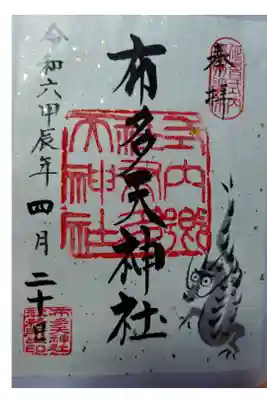 奉拝
延喜式内
布多天神社
天神社
令和六甲辰年四月二十一日